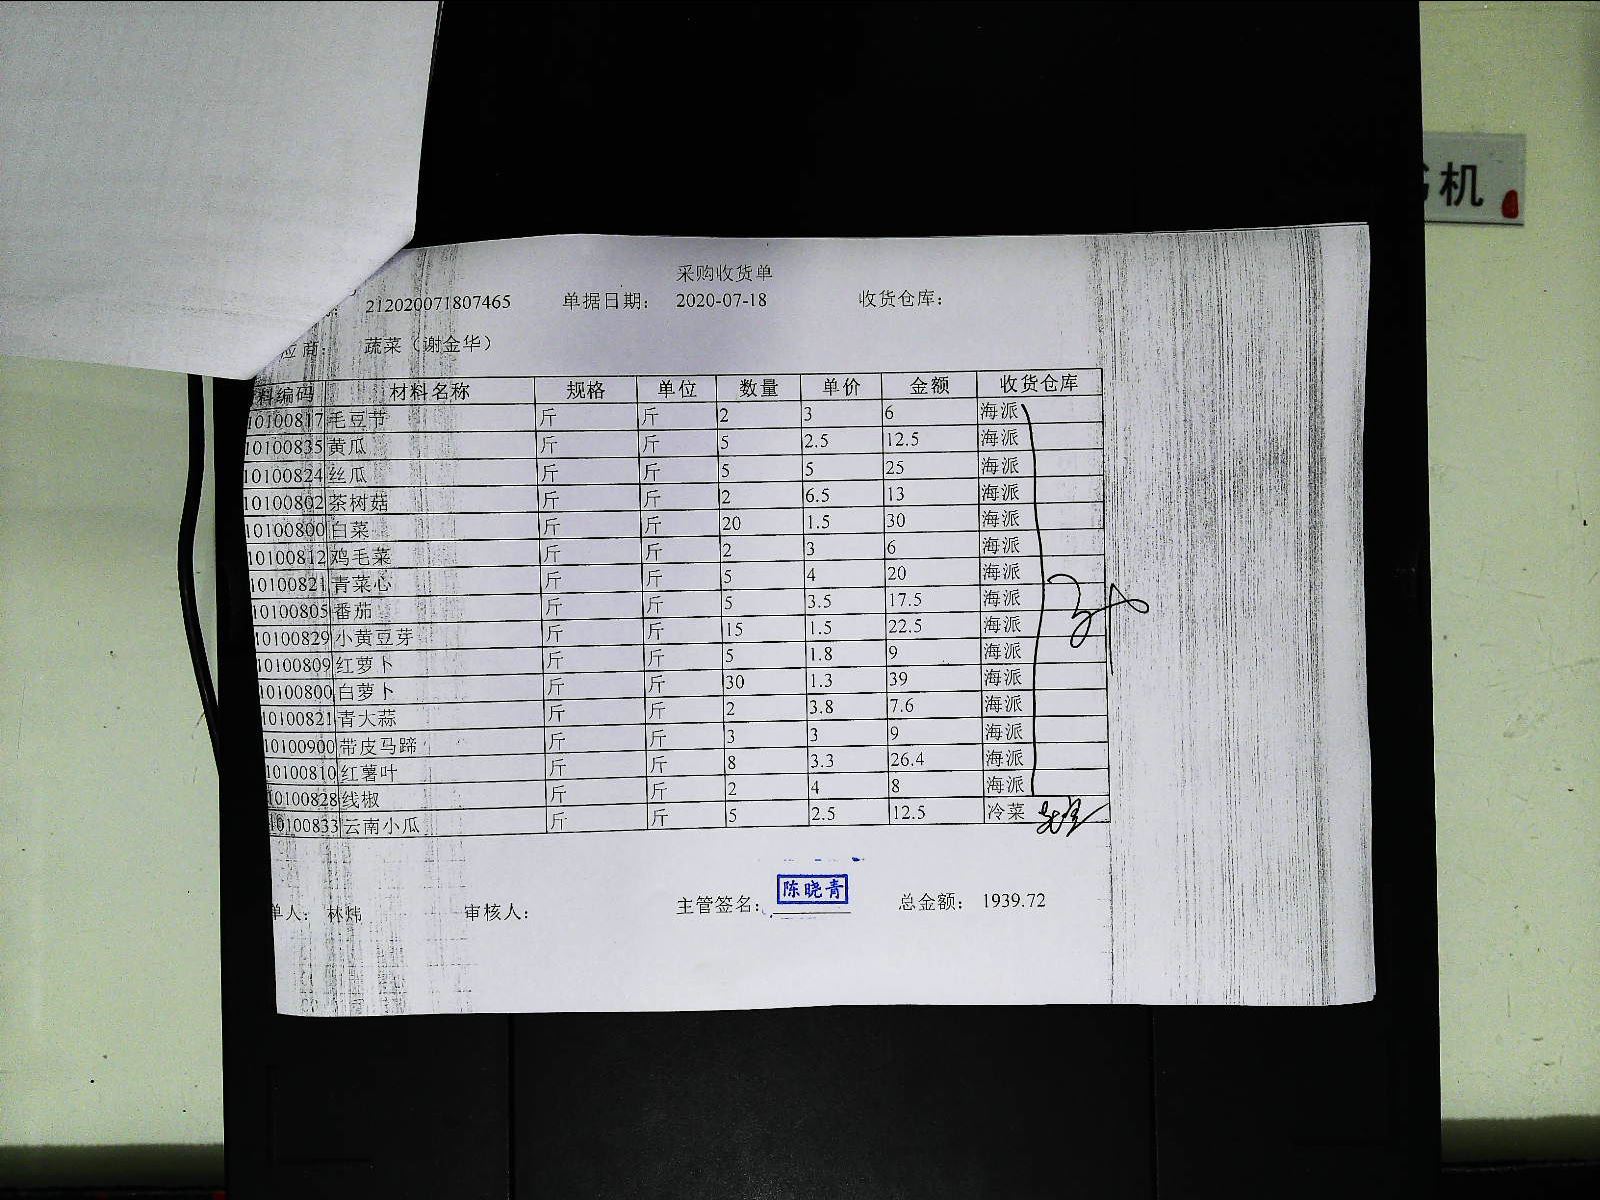 机
采购收货单
212020071807465 单据日期： 2020-07-18 收货仓库：
应商： 蔬菜（谢金华）
料编码 材料名称 规格 单位 数量 单价 金额 收货仓库
10100817 毛豆节 斤 斤 2 3 6 海派
10100835 黄瓜 斤 斤 5 2.5 12.5 海派
10100824 丝瓜 斤 斤 5 5 25 海派
10100802 茶树菇 斤 斤 2 6.5 13 海派
10100800 白菜 斤 斤 20 1.5 30 海派
10100812 鸡毛菜 斤 斤 2 3 6 海派
10100821 青菜心 斤 斤 5 4 20 海派
10100805 番茄 斤 斤 5 3.5 17.5 海派
10100829 小黄豆芽 斤 斤 15 1.5 22.5 海派
10100809 红萝卜 斤 斤 5 1.8 9 海派
10100800 白萝卜 斤 斤 30 1.3 39 海派
10100821 青大蒜 斤 斤 2 3.8 7.6 海派
10100900 带皮马蹄 斤 斤 3 3 9 海派
10100810 红薯叶 斤 斤 8 3.3 26.4 海派
10100828 线椒 斤 斤 2 4 8 海派
10100833 云南小瓜 斤 斤 5 2.5 12.5 冷菜
单人： 林炜 审核人： 主管签名： 陈晓青 总金额： 1939.72